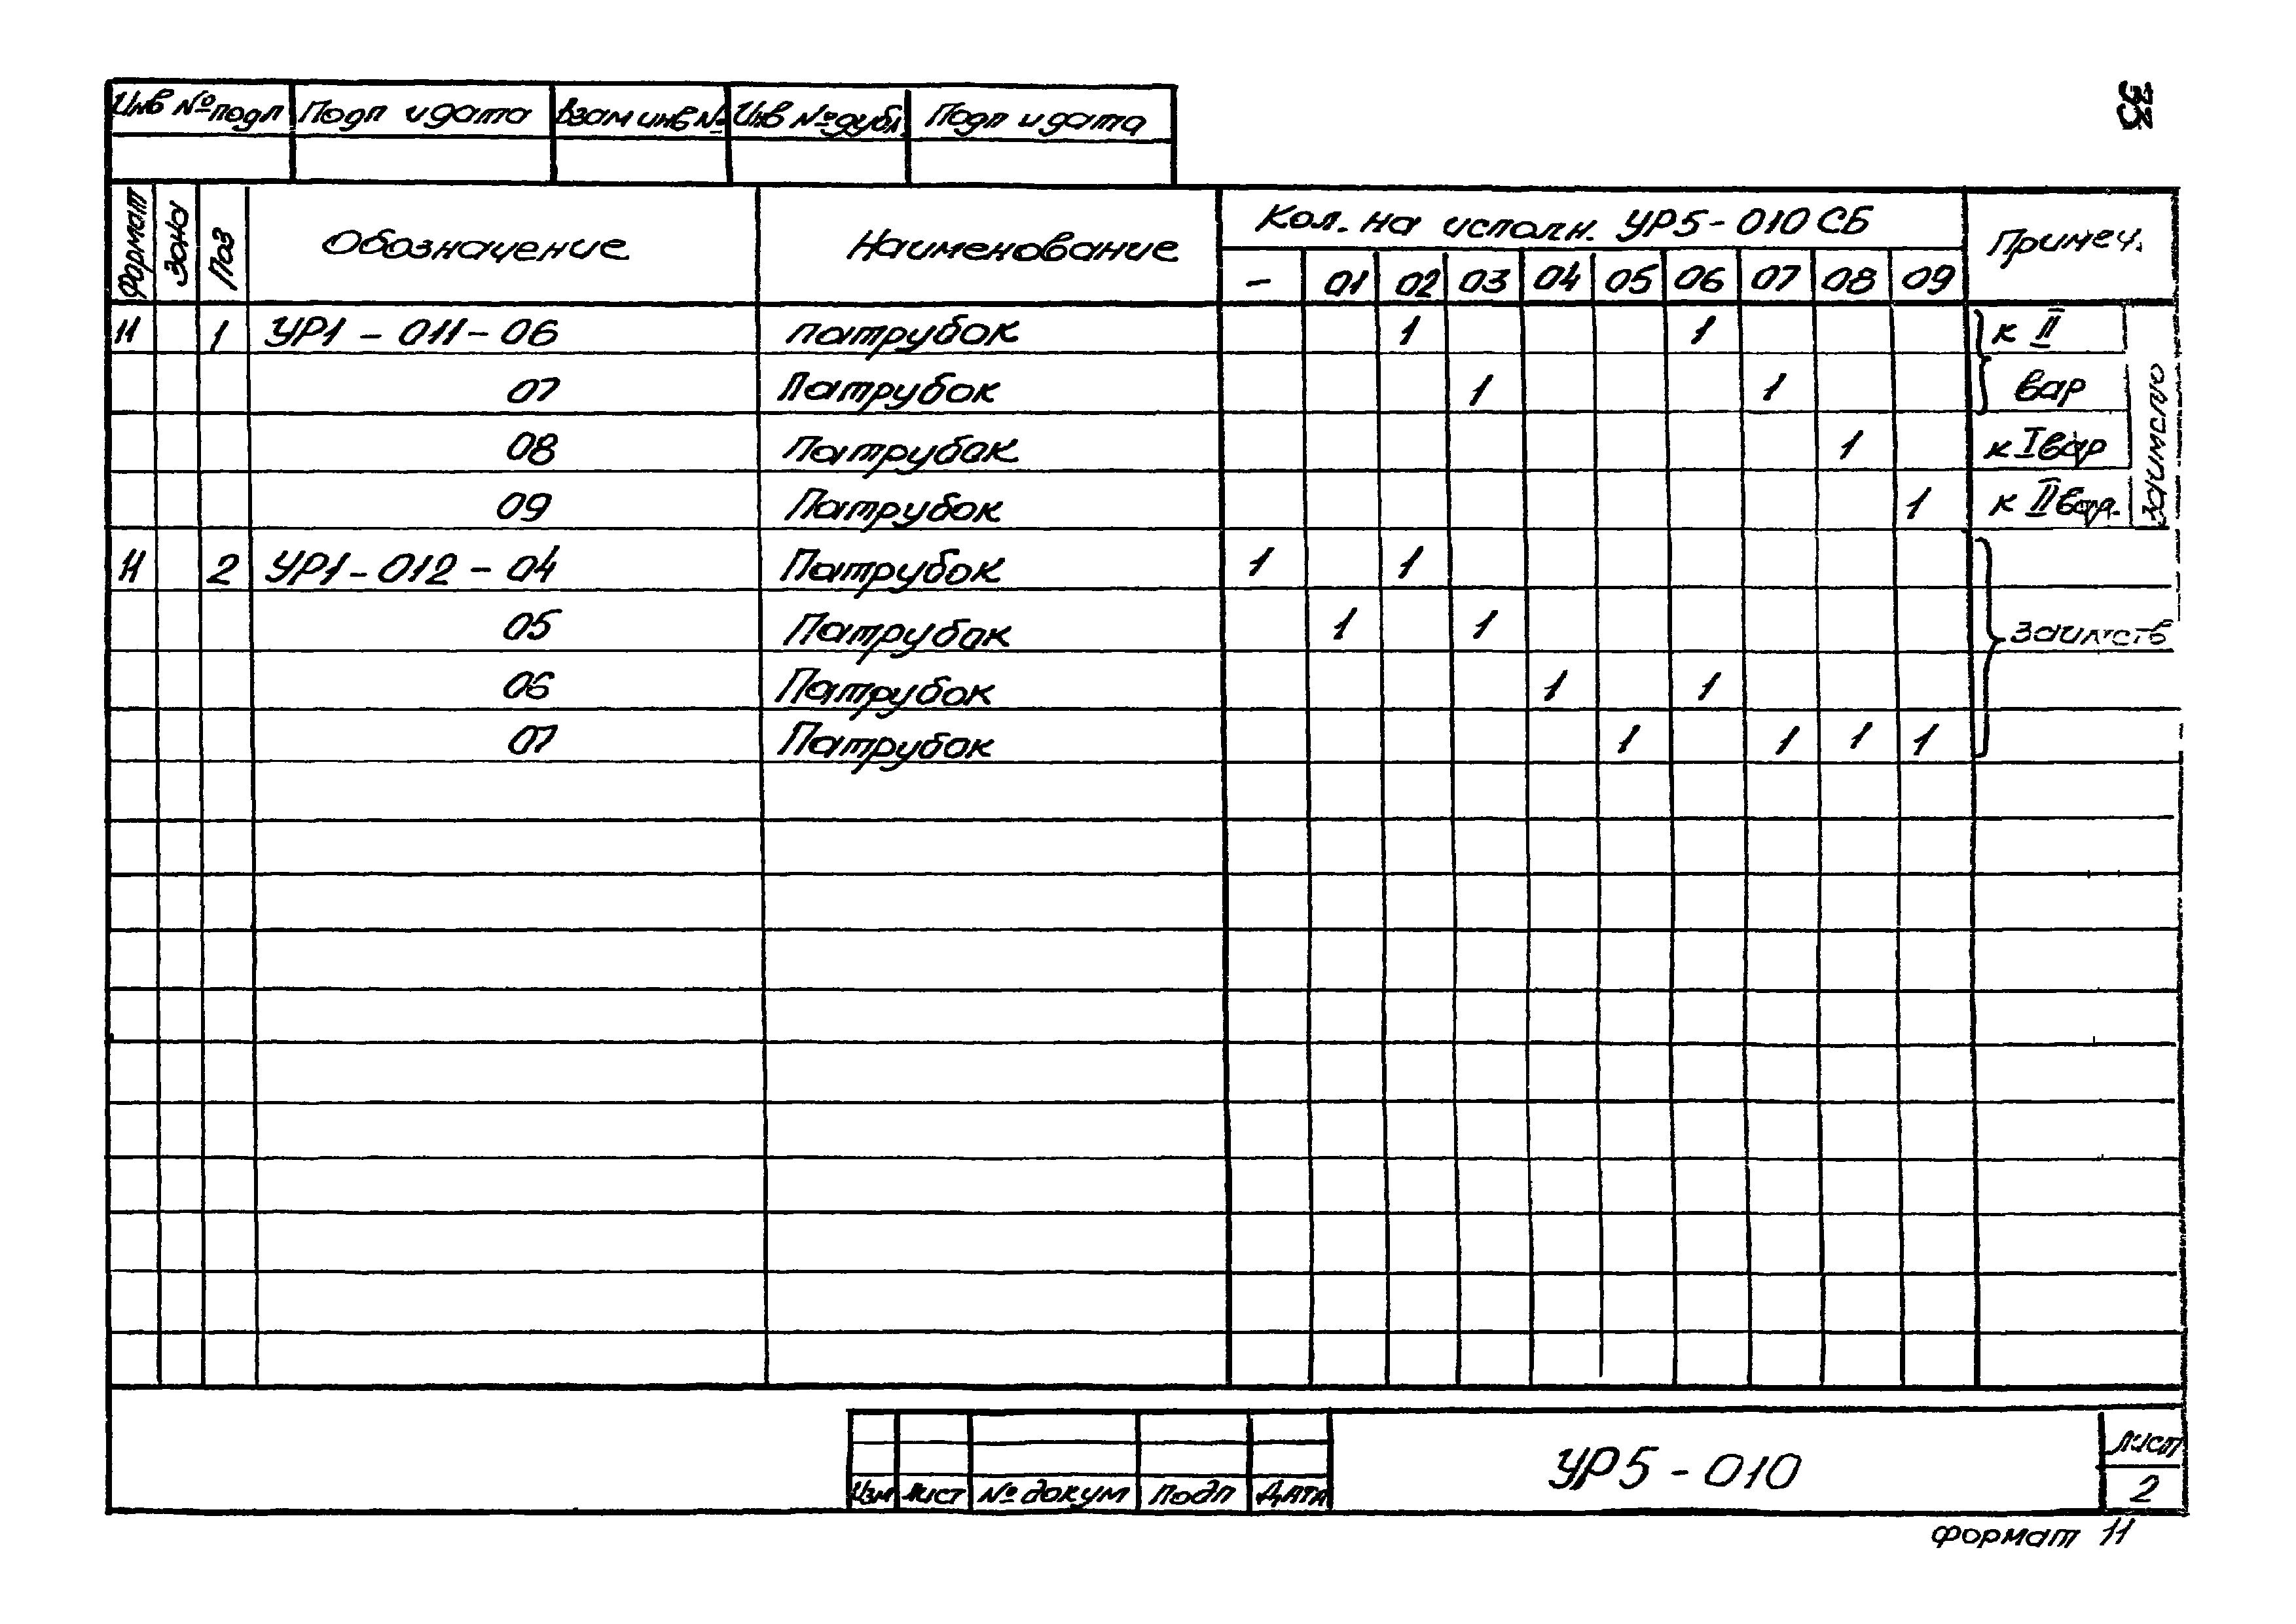 33
Инв № подл Подп и дата Взам инв № Инв № дубл. Подп и дата
Формат Зона Поз Обозначение Наименование Кол. на исполн. УР5-010 СБ Примеч.
– 01 02 03 04 05 06 07 08 09
11 1 УР1 – 011 – 06 патрубок 1 1 к II
07 Патрубок 1 1 вар
08 Патрубок 1 к I вар
09 Патрубок 1 к II вар.
11 2 УР1 – 012 – 04 Патрубок 1 1
05 Патрубок 1 1 заимств
06 Патрубок 1 1
07 Патрубок 1 1 1 1
Изм Лист № докум Подп Дата УР5 – 010 Лист
2
Формат 11